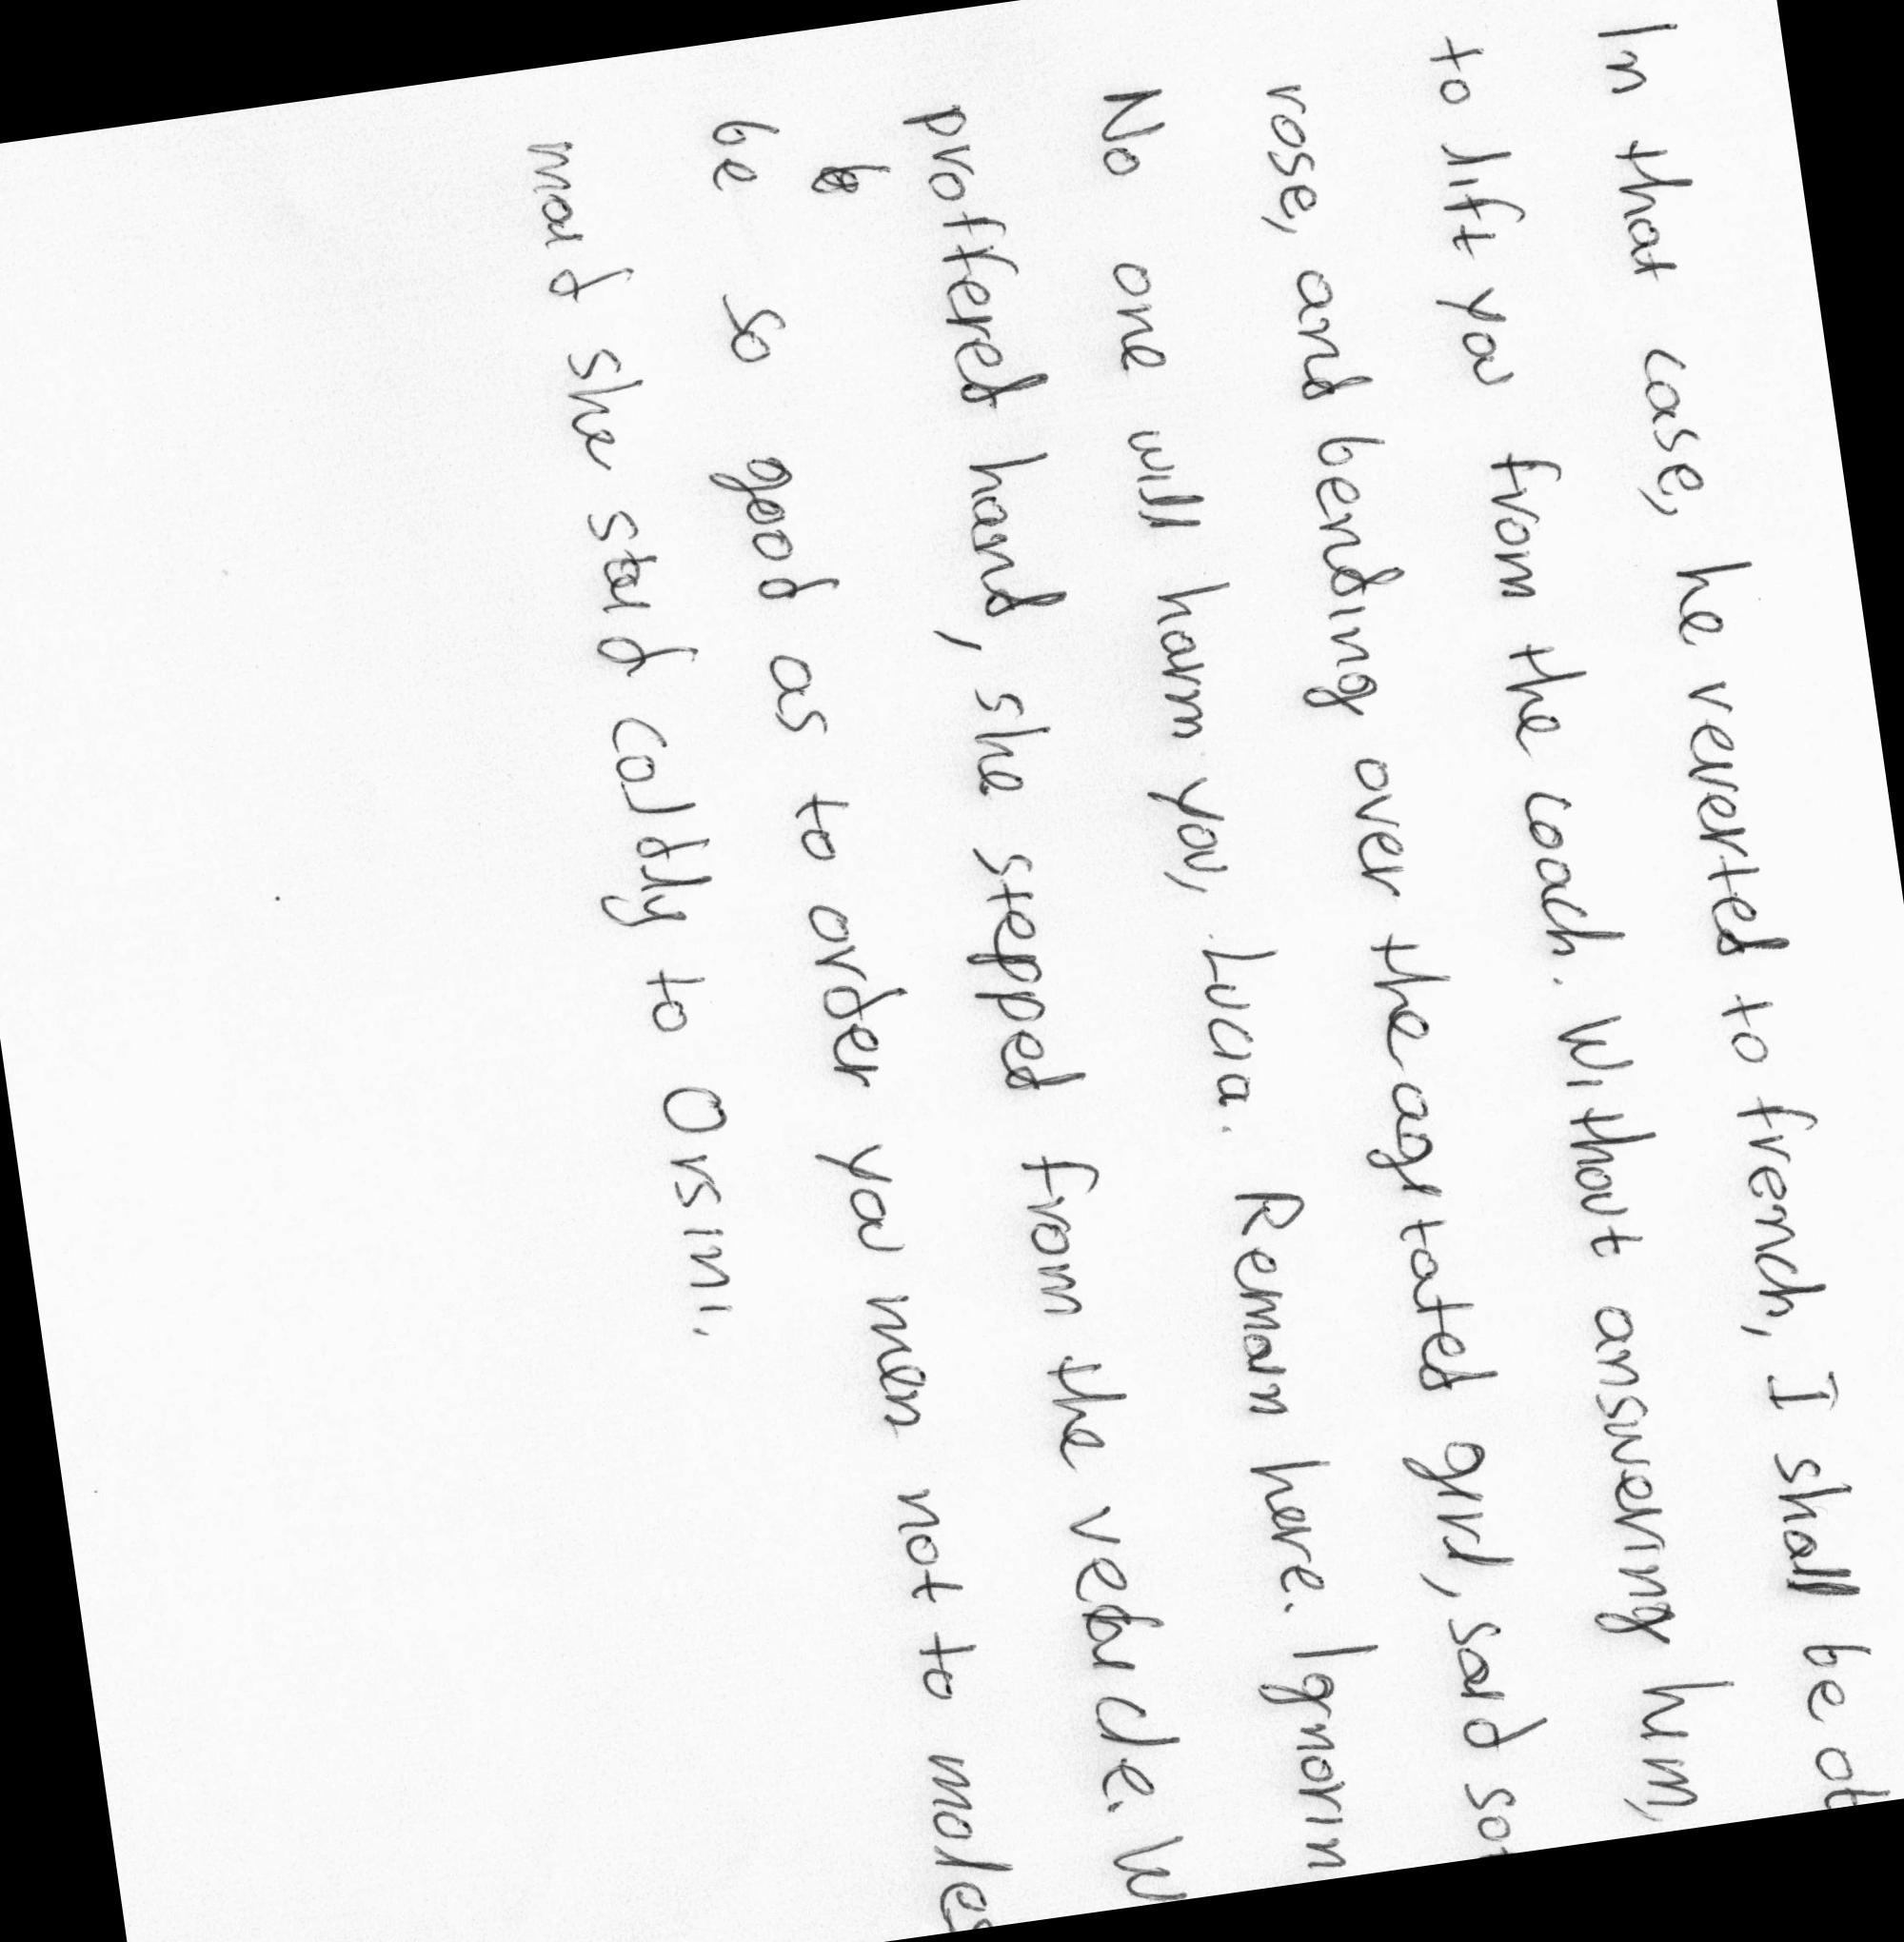 In that case, he reverted to french, I shall be
to lift you from the coach. Without answering him,
rose, and bending over the agitated girl, said
No one will harm you, Lucia. Remain here. Ignorin
proffered hand, she stepped from the vehicle.
be so good as to order you men not to moles
maid she said coldly to Orsini.